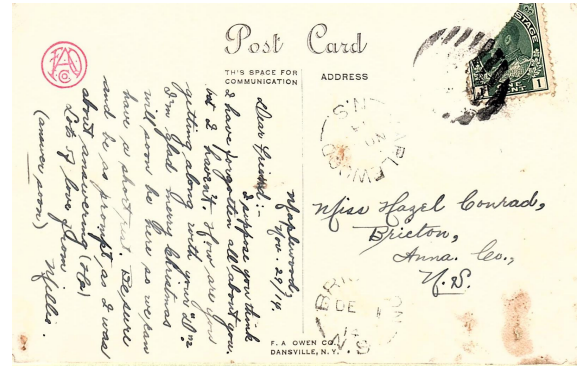 Post Card
THIS SPACE FOR
COMMUNICATION
ADDRESS
Maplewood,
Nov. 29/14.
Dear Friend:-
I suppose you think
I have forgotten all about you.
but I haven't. How are you
getting along with your
I'm glad hurry Christmas
will soon be here so we can
have a short rest. Be sure
and be as prompt as I was
about answering (Ha)
Lots of love from
Millie.
(answer soon)
POSTAGE
1
MAPLEWOOD
N.S.
Miss Hazel Conrad,
Brieton,
Anna. Co.,
N.S.
DE 1
14
N.S
F. A OWEN CO.
DANSVILLE, N.Y.